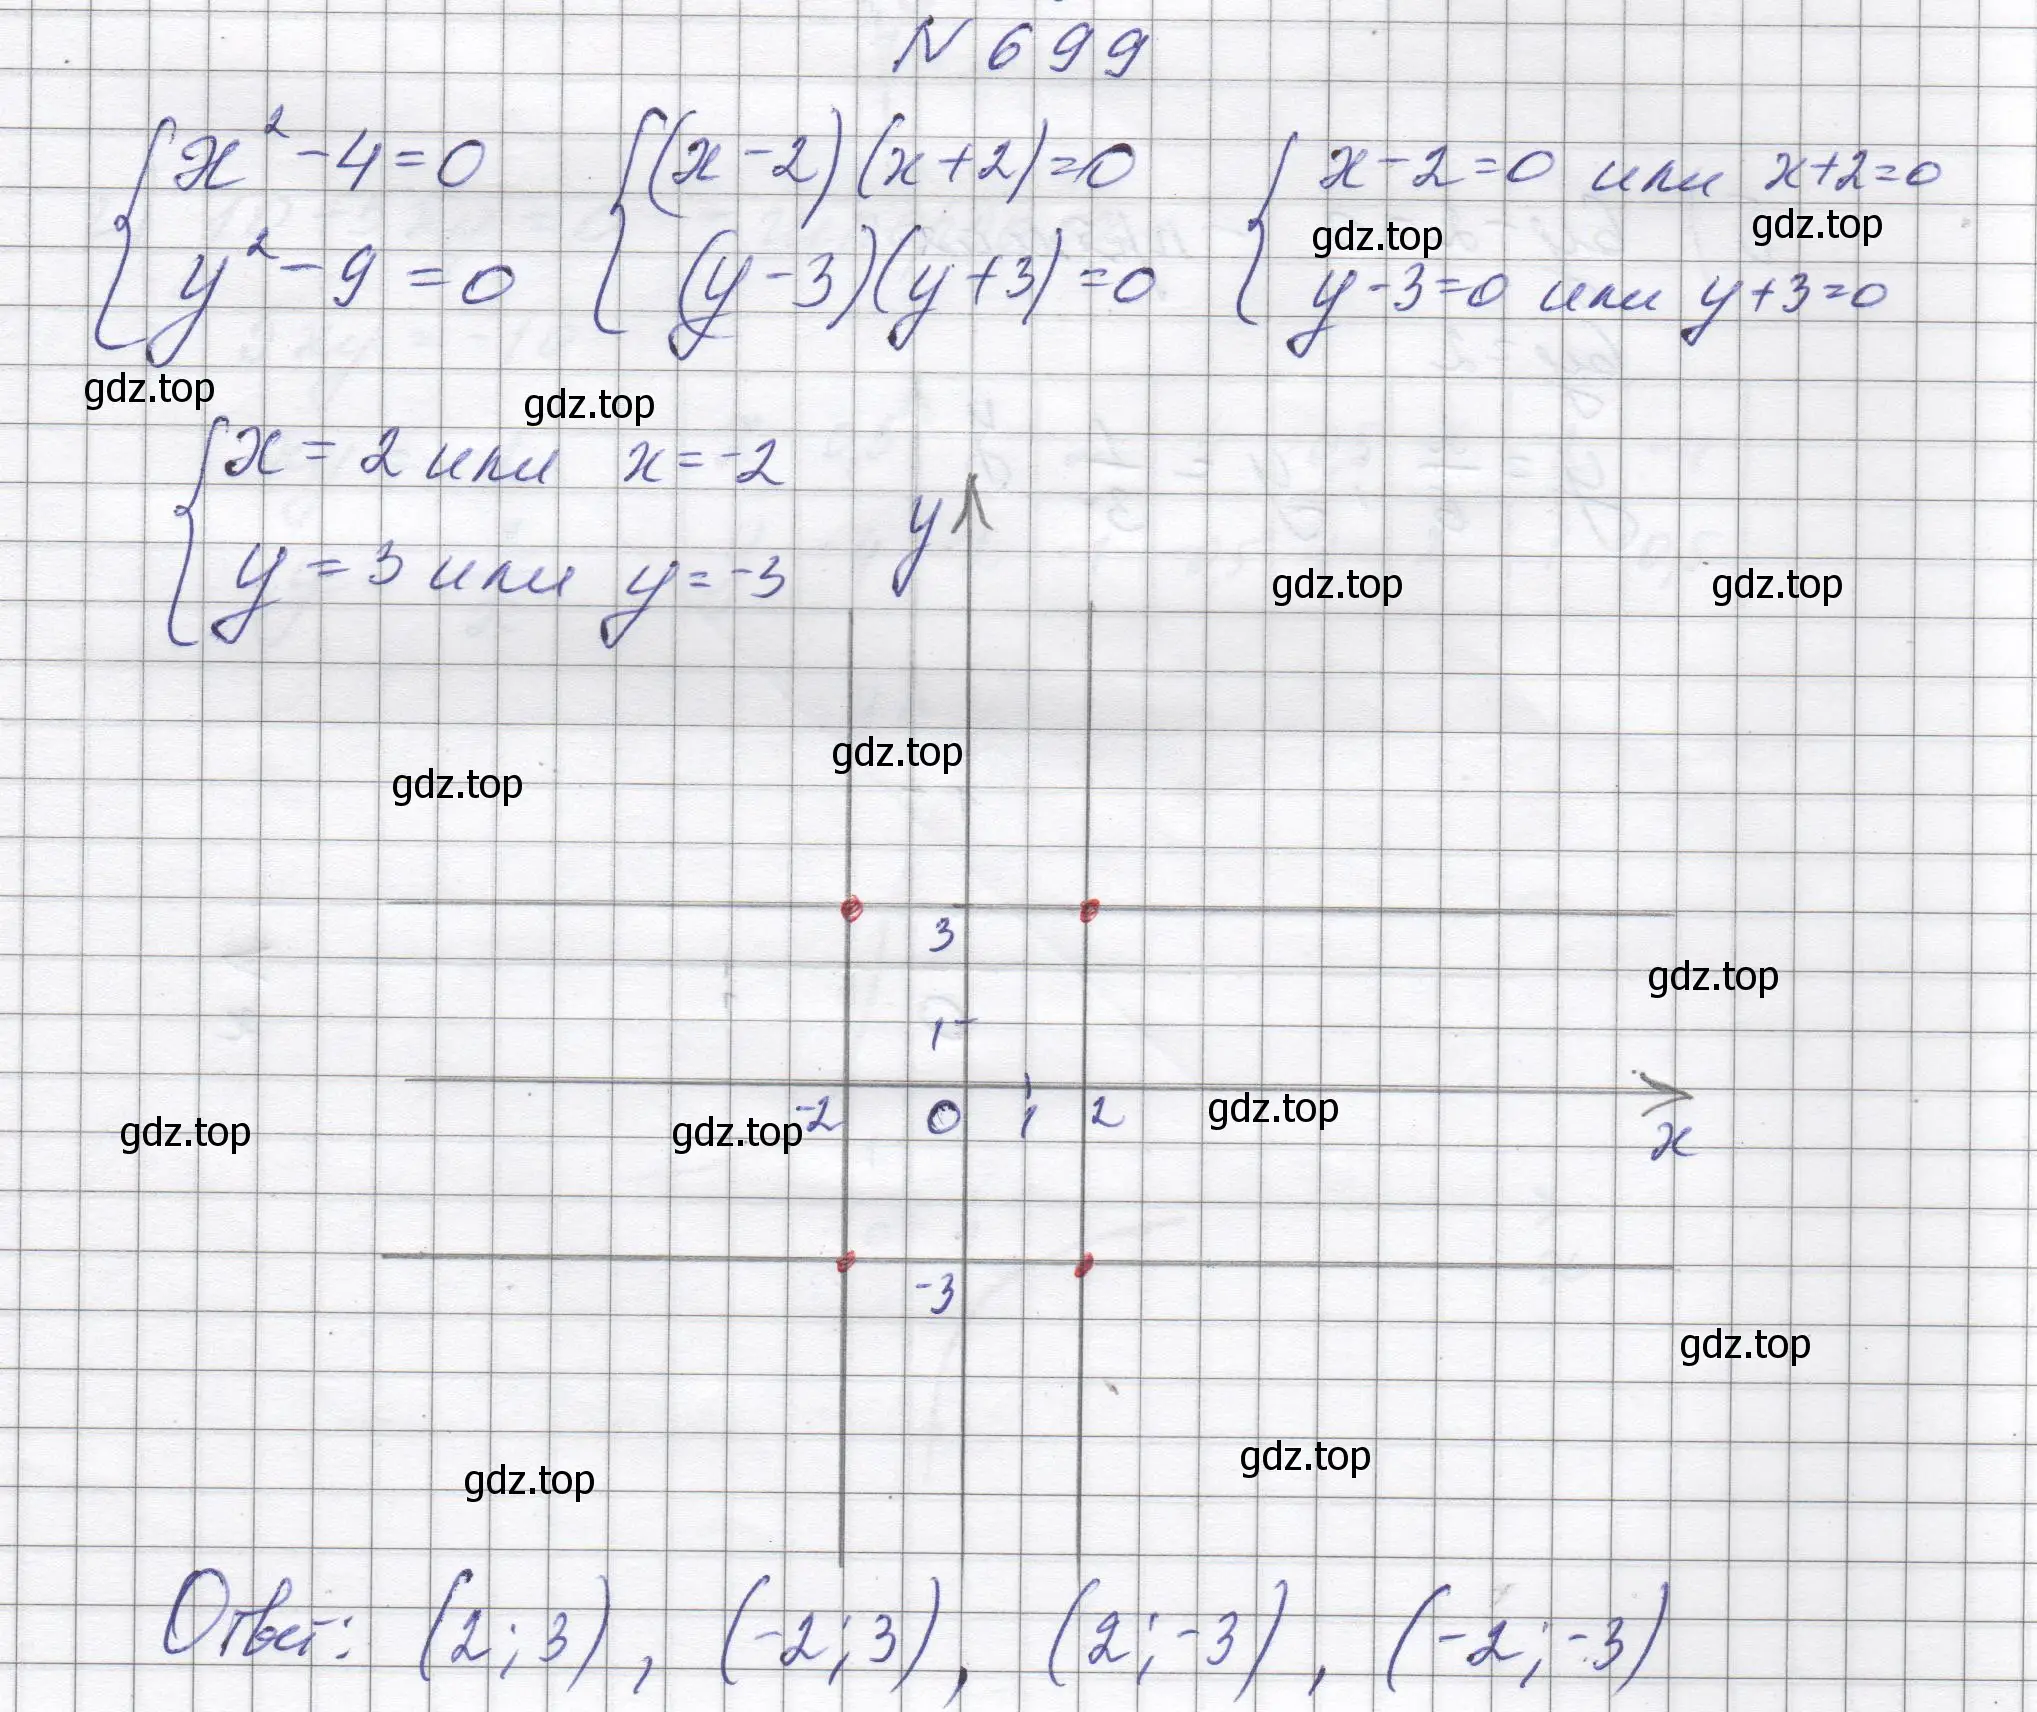 N 699
{ x² - 4 = 0 { (x - 2)(x + 2) = 0 { x - 2 = 0 или x + 2 = 0
{ y² - 9 = 0 { (y - 3)(y + 3) = 0 { y - 3 = 0 или y + 3 = 0
gdz.top gdz.top gdz.top gdz.top
{ x = 2 или x = -2
{ y = 3 или y = -3
y
gdz.top gdz.top
gdz.top gdz.top
3
gdz.top
1
-2 0 1 2
gdz.top gdz.top gdz.top
x
-3
gdz.top
gdz.top gdz.top
Ответ: (2; 3), (-2; 3), (2; -3), (-2; -3)